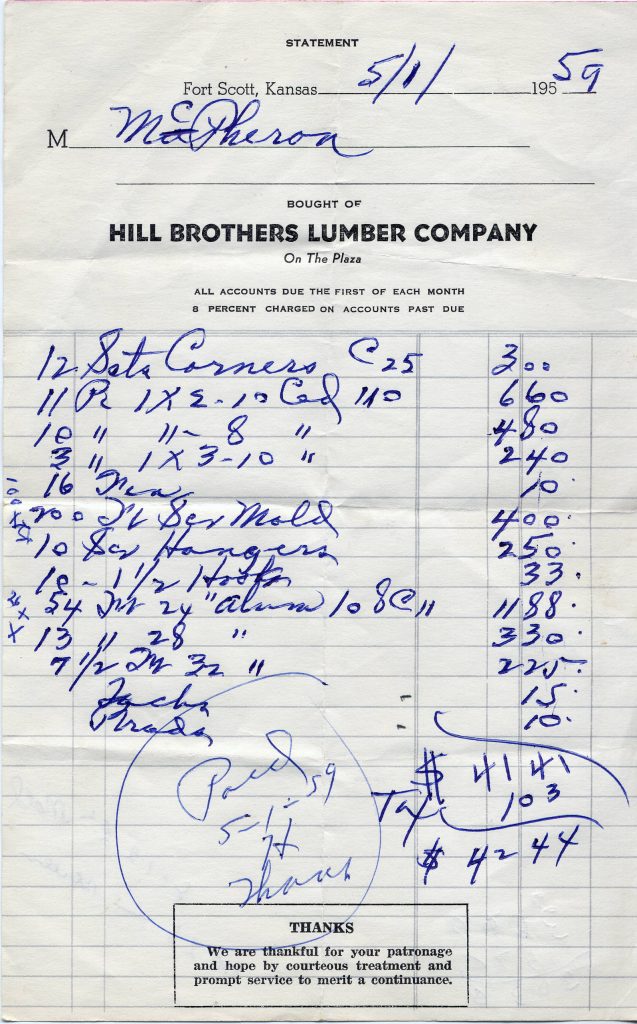 STATEMENT
Fort Scott, Kansas 5/1/ 195 59
M McPheron
BOUGHT OF
HILL BROTHERS LUMBER COMPANY
On The Plaza
ALL ACCOUNTS DUE THE FIRST OF EACH MONTH
8 PERCENT CHARGED ON ACCOUNTS PAST DUE
12 Sets Corners C 25 3 00
11 Pc 1 X 2 - 10 Ced 110 6 60
10 " " - 8 " 4 80
3 " 1 X 3 - 10 " 2 40
16 10
200 Ft Scr Mold 4 00
10 Scr Hangers 2 50
10 - 1 1/2 Hooks 33
54 Ft 24 " Alum 108 C 11 88
13 " 28 " 3 30
7 1/2 Ft 32 " 2 25
Tacks 15
Brads 10
$ 41 41
Tax 1 03
$ 42 44
Paid
5-1-59
H
Thanks
THANKS
We are thankful for your patronage
and hope by courteous treatment and
prompt service to merit a continuance.